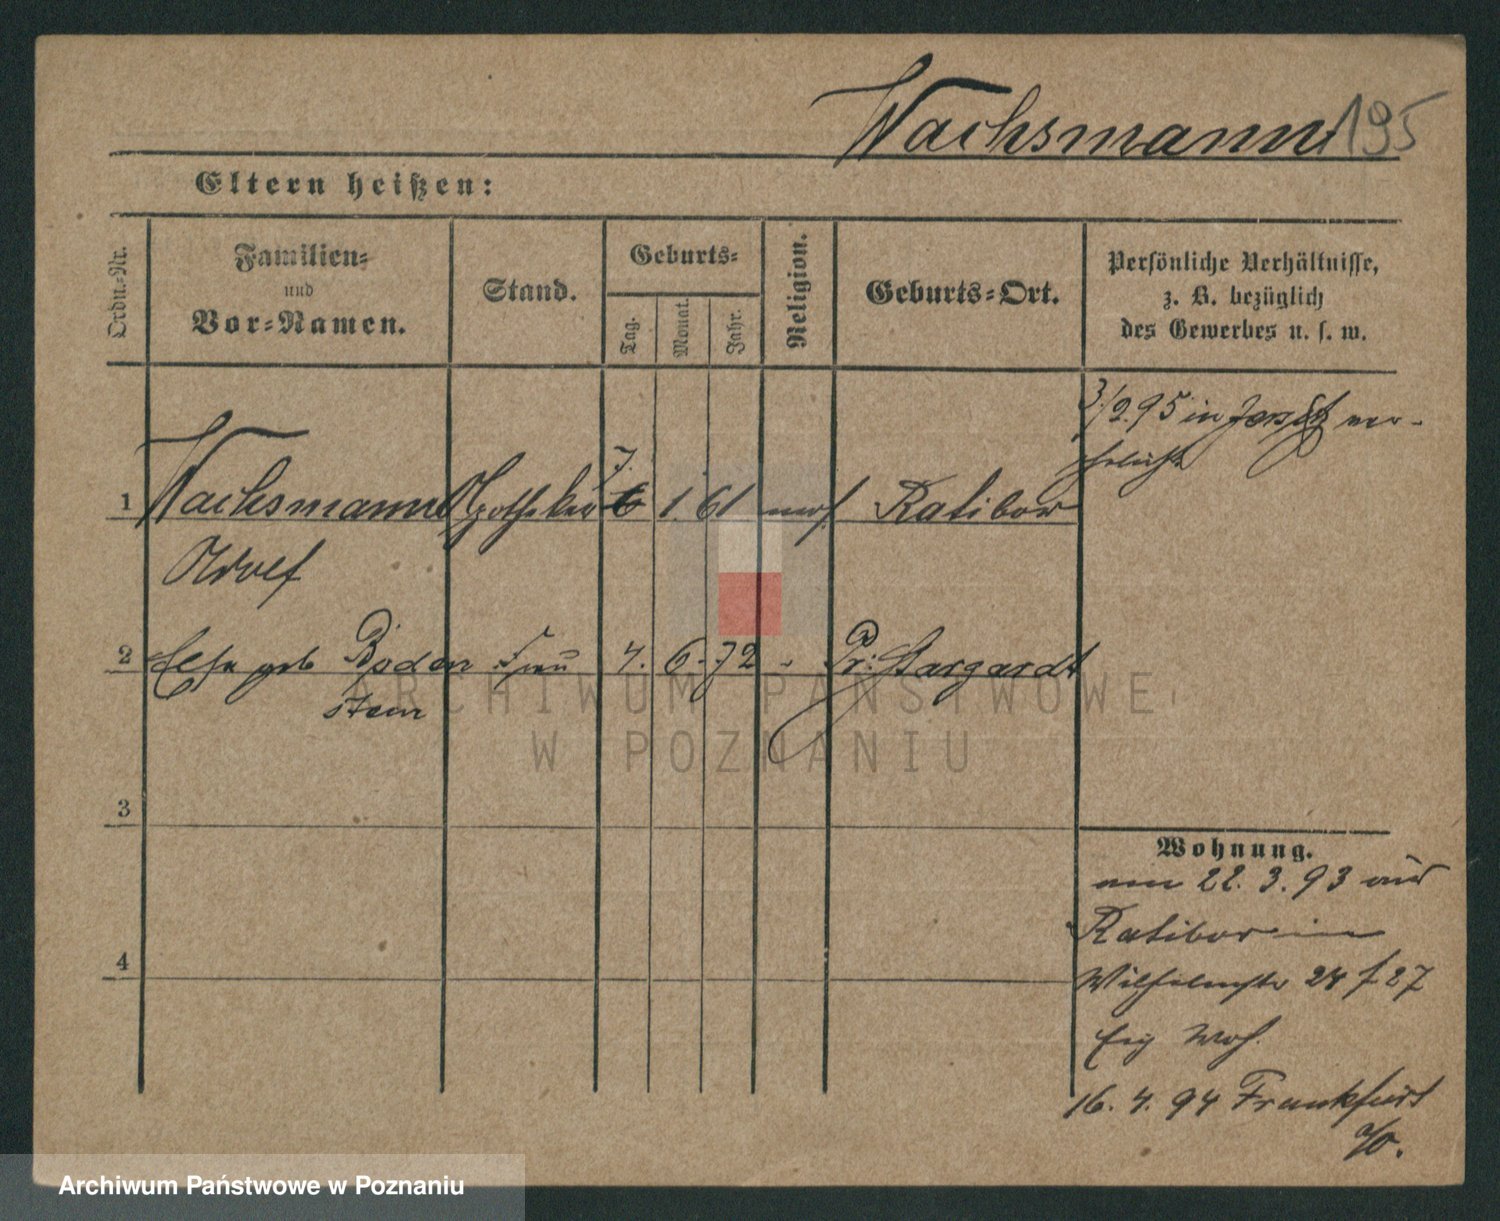 Wachsmann 195
Eltern heißen:
Ordn.-Nr.
Familien-
und
Vor-Namen.
Stand.
Geburts-
Tag.
Monat.
Jahr.
Religion.
Geburts-Ort.
Persönliche Verhältnisse,
z. B. bezüglich
des Gewerbes u. s. w.
3/2.95 in ver-
ehelicht
7.
1 Wachsmann Apotheker 6 1. 61 mos. Ratibor
Adolf
2 Else geb Boden Frau 4. 6. 72 " Pr: Stargardt
stein
ARCHIWUM PAŃSTWOWE
W POZNANIU
3
4
Wohnung.
am 22. 3. 93 aus
Ratibor in
Wilhelmstr 24 b 27
Eig Woh.
16. 4. 94 Frankfurt
a/O.
Archiwum Państwowe w Poznaniu